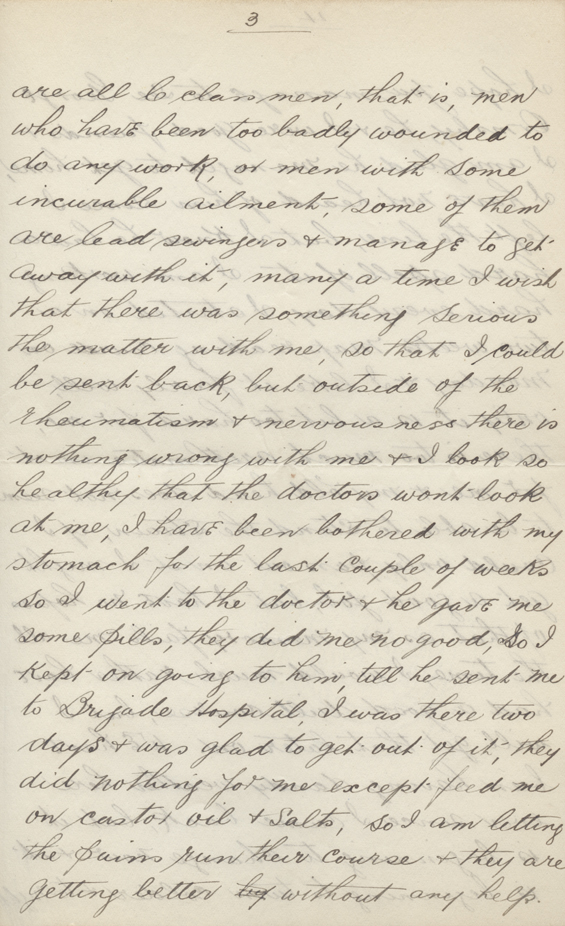 3
are all C class men, that is, men
who have been too badly wounded to
do any work, or men with some
incurable ailment, some of them
are lead swingers & manage to get
away with it, many a time I wish
that there was something serious
the matter with me, so that I could
be sent back, but outside of the
rheumatism & nervousness there is
nothing wrong with me & I look so
healthy that the doctors wont look
at me, I have been bothered with my
stomach for the last couple of weeks
so I went to the doctor & he gave me
some pills, they did me no good, So I
Kept on going to him, till he sent me
to Brigade Hospital, I was there two
days & was glad to get out of it, they
did nothing for me except feed me
on castor oil & Salts, so I am letting
the pains run their course & they are
getting better by without any help.